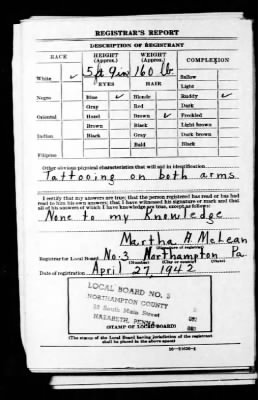 REGISTRAR'S REPORT
DESCRIPTION OF REGISTRANT
RACE HEIGHT (Approx.) WEIGHT (Approx.) COMPLEXION
5 ft 9 in 160 lb.
White ✓ EYES HAIR Sallow
Light
Negro Blue ✓ Blonde Ruddy ✓
Gray Red Dark
Oriental Hazel Brown ✓ Freckled
Brown Black Light brown
Indian Black Gray Dark brown
Bald Black
Filipino
Other obvious physical characteristics that will aid in identification
Tattooing on both arms
I certify that my answers are true; that the person registered has read or has had
read to him his own answers; that I have witnessed his signature or mark and that
all of his answers of which I have knowledge are true, except as follows:
None to my Knowledge
Martha A. McLean
(Signature of registrar)
Registrar for Local Board No. 3 Northampton Pa
(Number) (City or county) (State)
Date of registration April 27, 1942
LOCAL BOARD NO. 3
NORTHAMPTON COUNTY
South Main Street
NAZARETH, PENNA.
(STAMP OF LOCAL BOARD)
(The stamp of the Local Board having jurisdiction of the registrant
shall be placed in the above space)